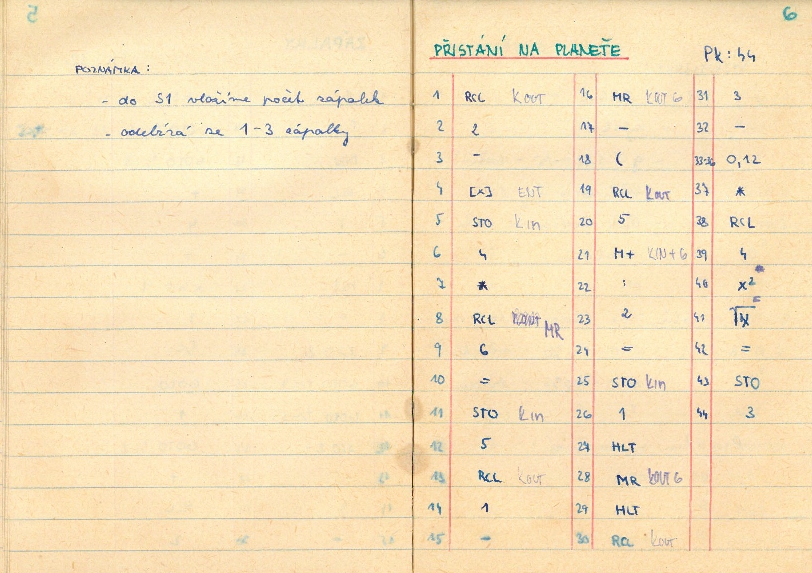 5
POZNÁMKA :
- do S1 vložíme počet zápalek
- odebírá se 1-3 zápalky
6
PŘISTÁNÍ NA PLANETĚ PK: 44
1 RCL KOUT 16 MR KOUT 6 31 3
2 2 17 - 32 -
3 - 18 ( 33-36 0,12
4 [×] ENT 19 RCL KOUT 37 *
5 STO Kin 20 5 38 RCL
6 4 21 M+ KIN+6 39 4
7 * 22 : 40 x²
8 RCL MR 23 2 41
9 6 24 = 42 =
10 = 25 STO Kin 43 STO
11 STO Kin 26 1 44 3
12 5 27 HLT
13 RCL KOUT 28 MR KOUT 6
14 1 29 HLT
15 - 30 RCL KOUT